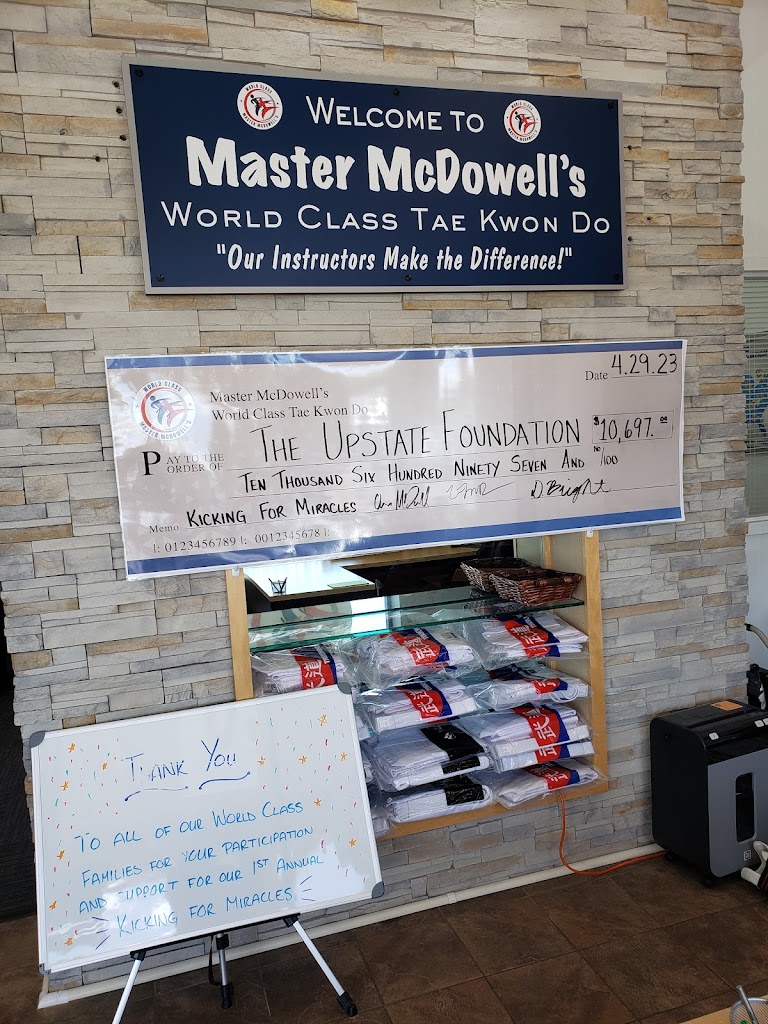 WELCOME TO
MASTER MCDOWELL'S
WORLD CLASS TAE KWON DO
"Our Instructors Make the Difference!"
Date 4.29.23
WORLD CLASS
MASTER MCDOWELL'S
Master McDowell's
World Class Tae Kwon Do
PAY TO THE ORDER OF THE UPSTATE FOUNDATION $10,697.00
TEN THOUSAND SIX HUNDRED NINETY SEVEN AND no/100
Memo KICKING FOR MIRACLES
|: 0123456789 |: 0012345678 |:
武道
THANK YOU
TO ALL OF OUR WORLD CLASS
FAMILIES FOR YOUR PARTICIPATION
AND SUPPORT FOR OUR 1ST ANNUAL
KICKING FOR MIRACLES